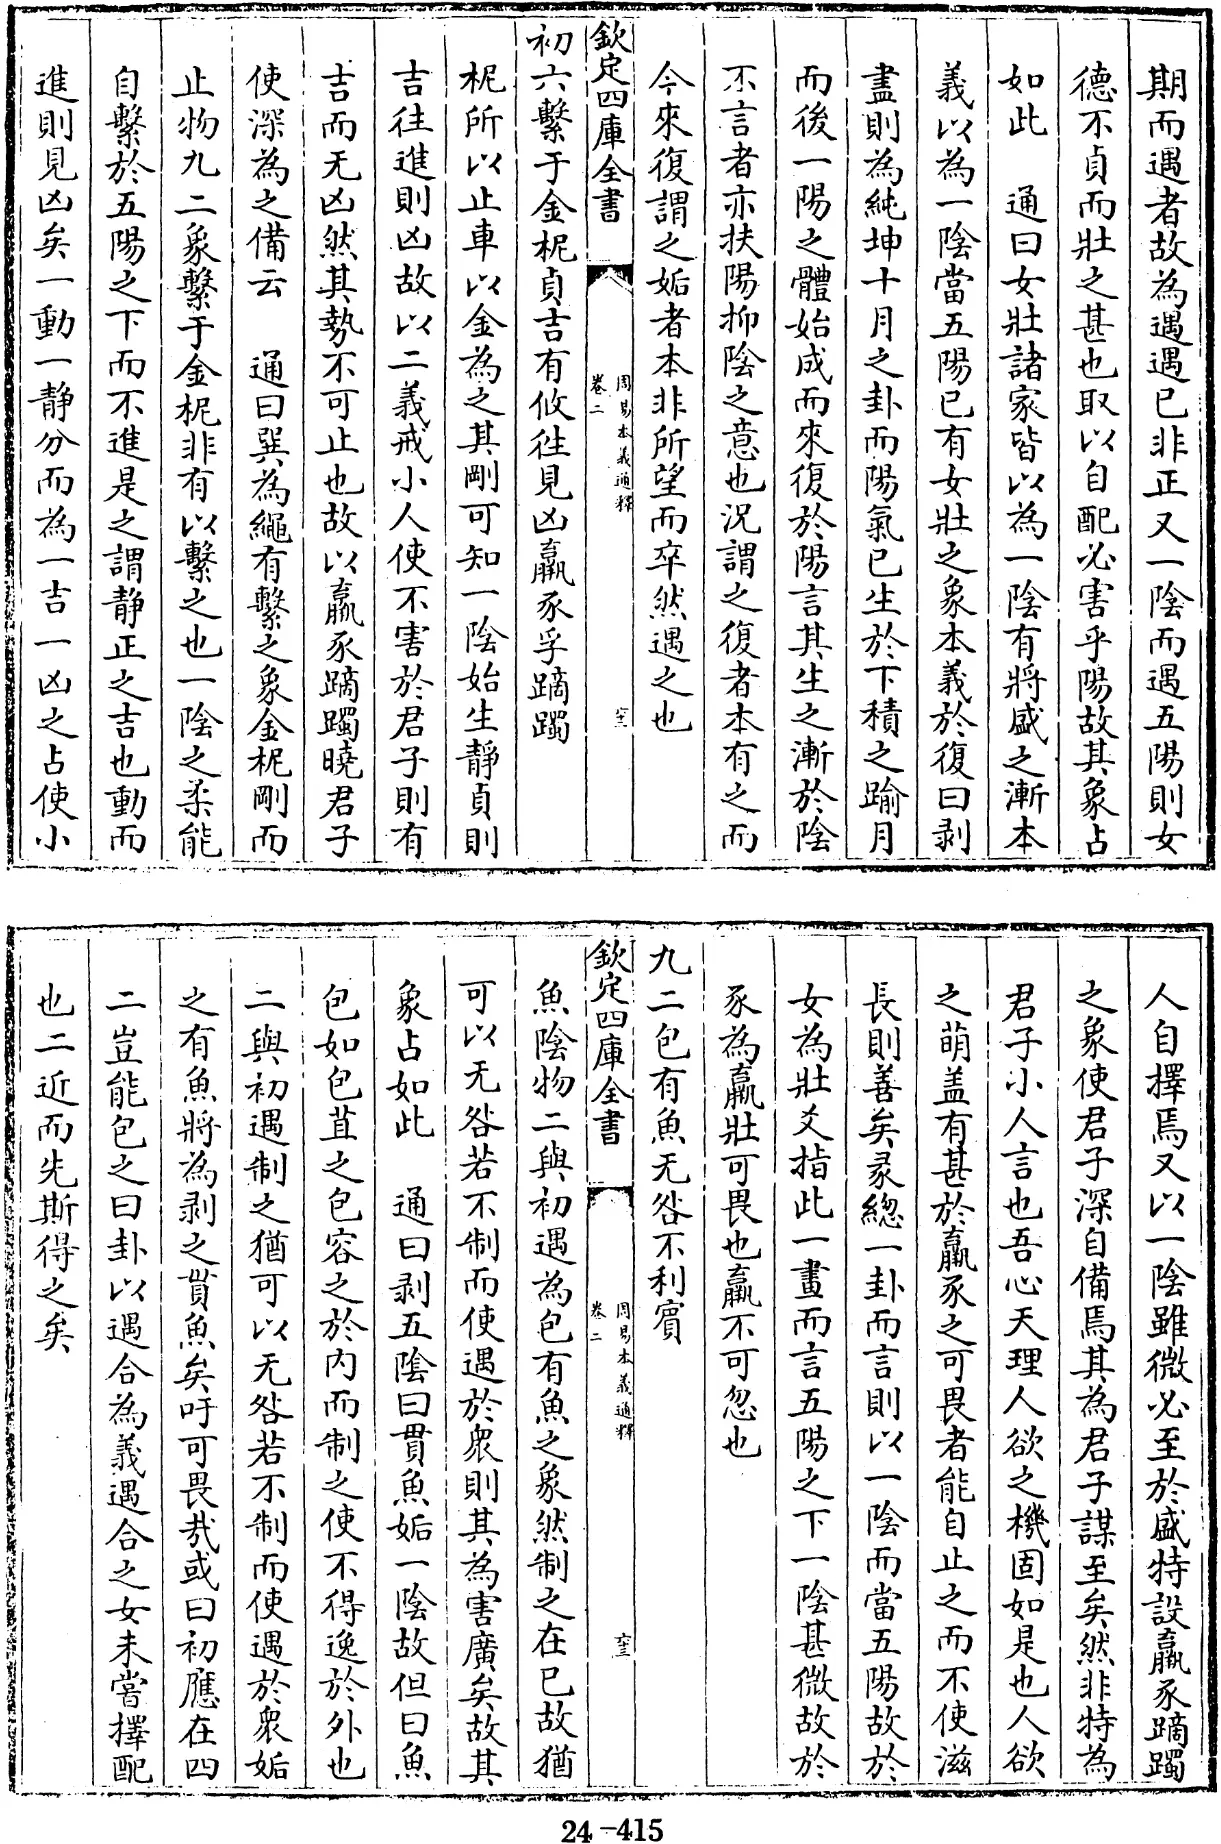 期而遇者故為遇遇已非正又一陰而遇五陽則女
德不貞而壯之甚也取以自配必害乎陽故其象占
如此　通曰女壯諸家皆以為一陰有將盛之漸本
義以為一陰當五陽已有女壯之象本義於復曰剥
盡則為純坤十月之卦而陽氣已生於下積之踰月
而後一陽之體始成而來復於陽言其生之漸於陰
不言者亦扶陽抑陰之意也況謂之復者本有之而
今來復謂之姤者本非所望而卒然遇之也
欽定四庫全書
周易本義通釋
卷二
六二
初六繫于金柅貞吉有攸往見凶羸豕孚蹢躅
柅所以止車以金為之其剛可知一陰始生靜貞則
吉往進則凶故以二義戒小人使不害於君子則有
吉而无凶然其勢不可止也故以羸豕蹢躅曉君子
使深為之備云　通曰巽為繩有繫之象金柅剛而
止物九二象繫于金柅非有以繫之也一陰之柔能
自繫於五陽之下而不進是之謂静正之吉也動而
進則見凶矣一動一静分而為一吉一凶之占使小
人自擇焉又以一陰雖微必至於盛特設羸豕蹢躅
之象使君子深自備焉其為君子謀至矣然非特為
君子小人言也吾心天理人欲之機固如是也人欲
之萌盖有甚於羸豕之可畏者能自止之而不使滋
長則善矣彖緫一卦而言則以一陰而當五陽故於
女為壯爻指此一畫而言五陽之下一陰甚微故於
豕為羸壯可畏也羸不可忽也
九二包有魚无咎不利賓
欽定四庫全書
周易本義通釋
卷二
六三
魚陰物二與初遇為包有魚之象然制之在已故猶
可以无咎若不制而使遇於衆則其為害廣矣故其
象占如此　通曰剥五陰曰貫魚姤一陰故但曰魚
包如包苴之包容之於内而制之使不得逸於外也
二與初遇制之猶可以无咎若不制而使遇於衆姤
之有魚將為剥之貫魚矣吁可畏哉或曰初應在四
二豈能包之曰卦以遇合為義遇合之女未嘗擇配
也二近而先斯得之矣
24-415